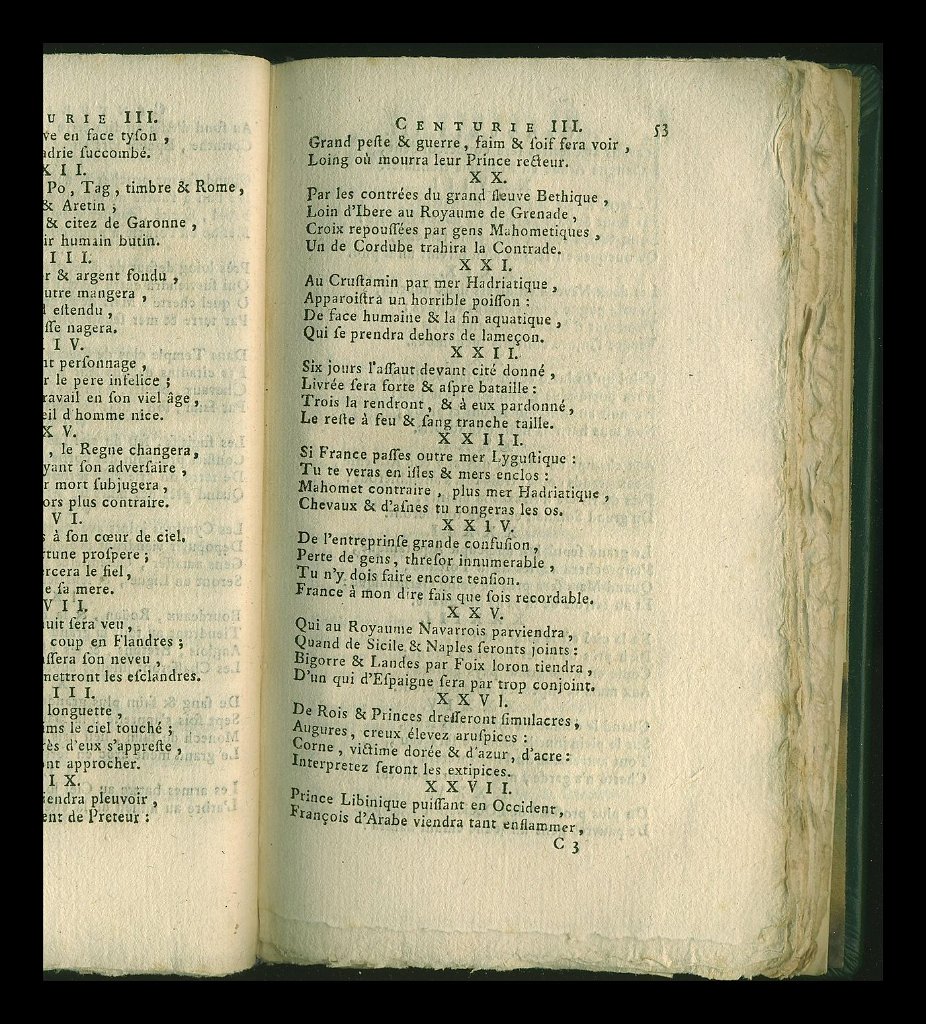 URIE III.
ve en face tyſon,
adrie ſuccombé.
XII.
Po, Tag, timbre & Rome,
& Aretin;
& citez de Garonne,
ir humain butin.
III.
r & argent fondu,
utre mangera,
l eſtendu,
ſſe nagera.
IV.
nt perſonnage,
r le pere infelice;
ravail en ſon viel âge,
eil d'homme nice.
XV.
, le Regne changera,
yant ſon adverſaire,
r mort ſubjugera,
ors plus contraire.
VI.
s à ſon cœur de ciel.
rtune proſpere;
ercera le fiel,
e ſa mere.
VII.
uit ſera veu,
coup en Flandres;
ſſera ſon neveu,
mettront les eſclandres.
III.
longuette,
ims le ciel touché;
rès d'eux s'appreſte,
ont approcher.
IX.
iendra pleuvoir,
ent de Preteur:
CENTURIE III. 53
Grand peſte & guerre, faim & ſoif ſera voir,
Loing où mourra leur Prince recteur.
XX.
Par les contrées du grand fleuve Bethique,
Loin d'Ibere au Royaume de Grenade,
Croix repouſſées par gens Mahometiques,
Un de Cordube trahira la Contrade.
XXI.
Au Cruſtamin par mer Hadriatique,
Apparoiſtra un horrible poiſſon:
De face humaine & la fin aquatique,
Qui ſe prendra dehors de lameçon.
XXII.
Six jours l'aſſaut devant cité donné,
Livrée ſera forte & aſpre bataille:
Trois la rendront, & à eux pardonné,
Le reſte à feu & ſang tranche taille.
XXIII.
Si France paſſes outre mer Lyguſtique:
Tu te veras en iſles & mers enclos:
Mahomet contraire, plus mer Hadriatique,
Chevaux & d'aſnes tu rongeras les os.
XXIV.
De l'entreprinſe grande confuſion,
Perte de gens, threſor innumerable,
Tu n'y dois faire encore tenſion.
France à mon dire fais que ſois recordable.
XXV.
Qui au Royaume Navarrois parviendra,
Quand de Sicile & Naples ſeronts joints:
Bigorre & Landes par Foix loron tiendra,
D'un qui d'Eſpaigne ſera par trop conjoint.
XXVI.
De Rois & Princes dreſſeront ſimulacres,
Augures, creux élevez aruſpices:
Corne, victime dorée & d'azur, d'acre:
Interpretez ſeront les extipices.
XXVII.
Prince Libinique puiſſant en Occident,
François d'Arabe viendra tant enflammer,
C 3